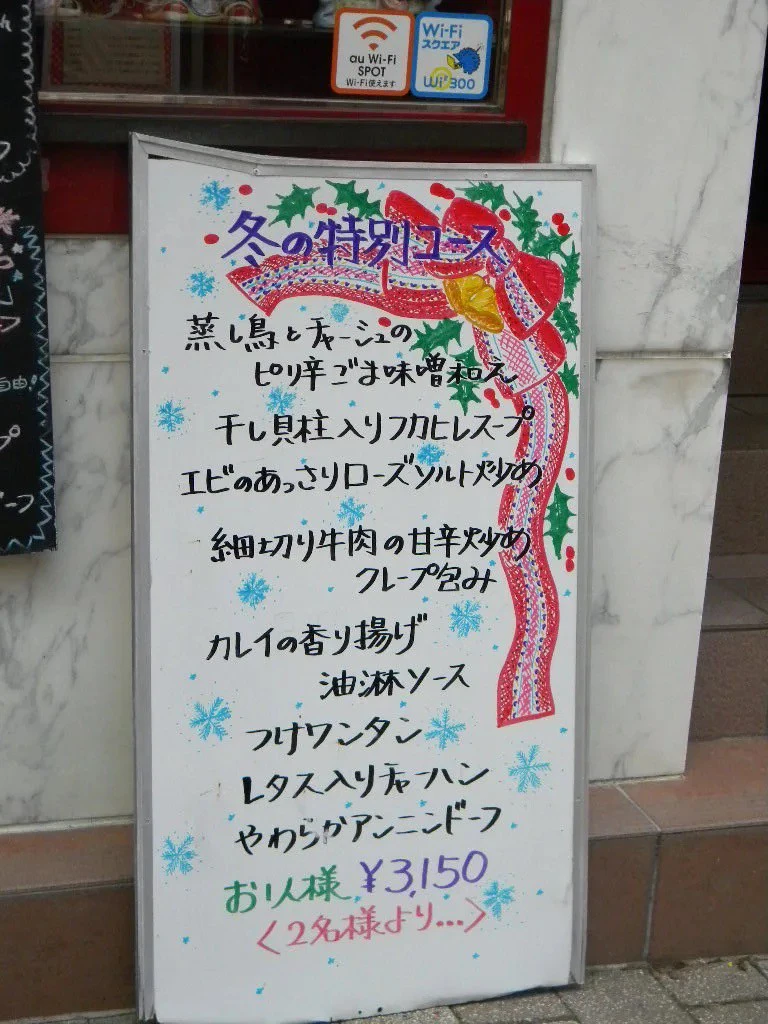 au Wi-Fi
SPOT
Wi-Fi使えます
Wi-Fi
スクエア
Wi2 300
冬の特別コース
蒸し鳥とチャーシュの
ピリ辛ごま味噌和え
干し貝柱入りフカヒレスープ
エビのあっさりローズソルト炒め
細切り牛肉の甘辛炒め
クレープ包み
カレイの香り揚げ
油淋ソース
つけワンタン
レタス入りチャーハン
やわらかアンニンドーフ
お1人様 ¥3,150
〈2名様より...〉
自由!
プ
ーフ